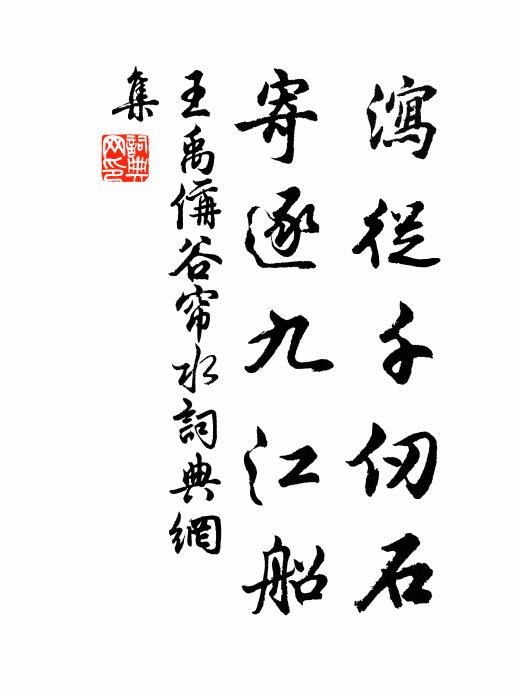 瀉從千仞石
寄逐九江船
王禹偁谷帘水詞典網
集
詞典
网印